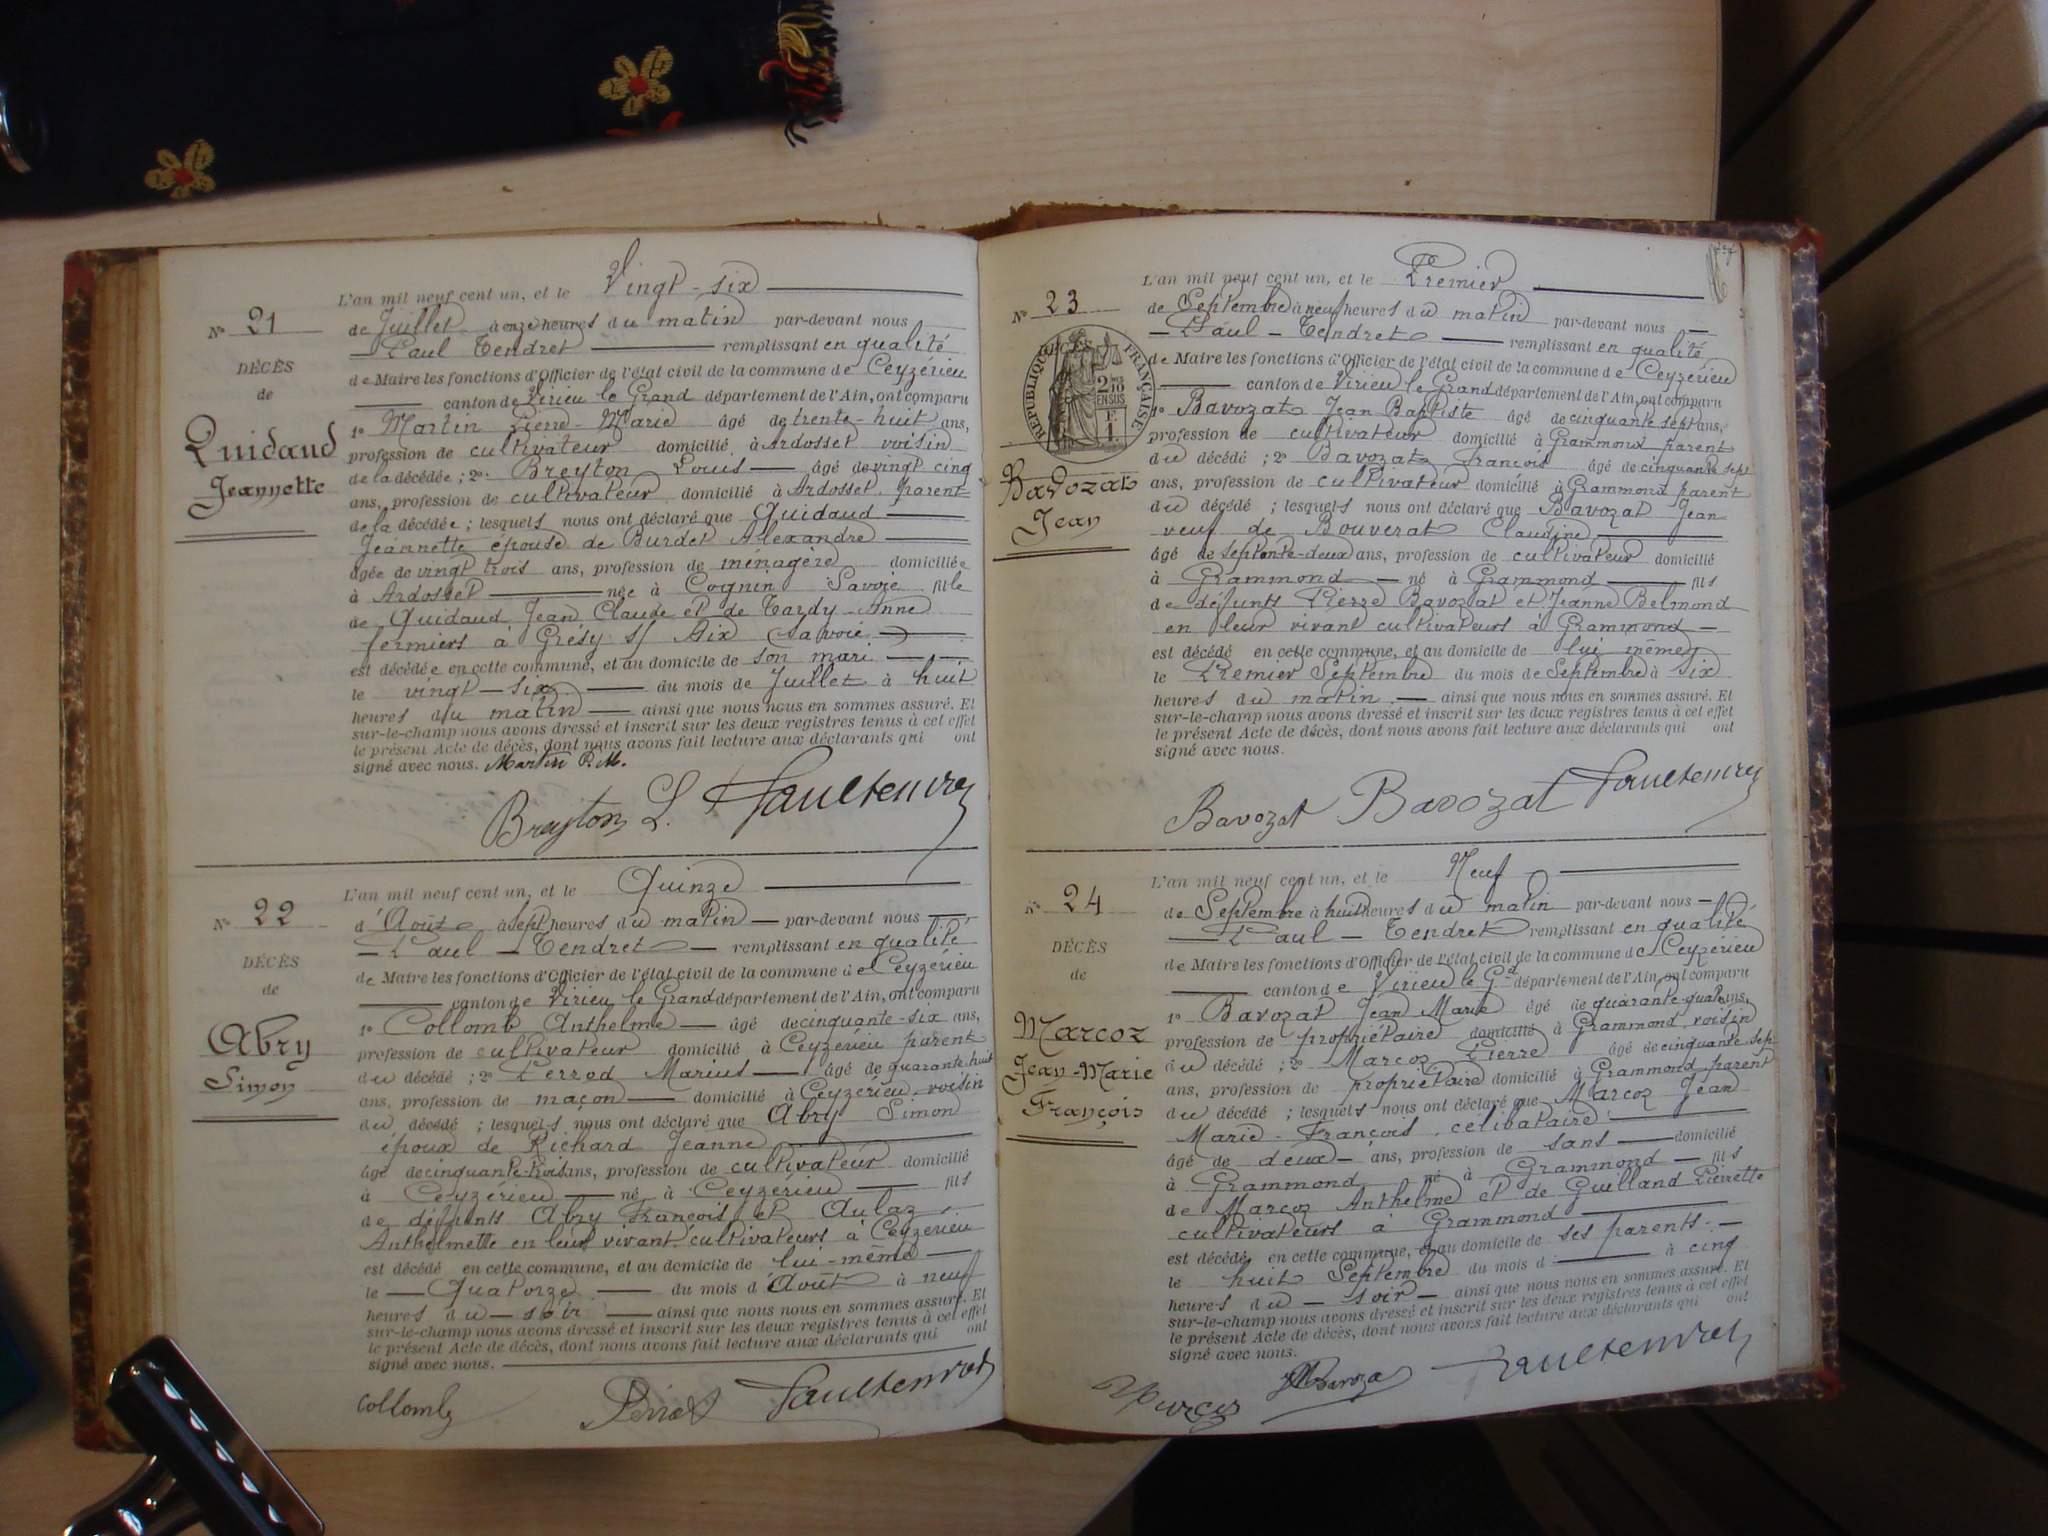 L'an mil neuf cent un, et le Vingt-six
N° 21
de Juillet à onze heures du matin par-devant nous
Paul Tendret remplissant en qualité
DÉCÈS
de Maire les fonctions d'Officier de l'état civil de la commune de Ceyzérieu
de
canton de Virieu le Grand département de l'Ain, ont comparu
Quidaud
Jeannette
1° Martin Pierre-Marie âgé de trente-huit ans,
profession de cultivateur domicilié à Ardosset voisin
de la décédée ; 2° Breyton Louis âgé de vingt cinq
ans, profession de cultivateur domicilié à Ardosset parent
de la décédée ; lesquels nous ont déclaré que Quidaud
Jeannette épouse de Burdet Alexandre
âgée de vingt trois ans, profession de ménagère domiciliée
à Ardosset née à Cognin Savoie fille
de Quidaud Jean Claude et de Tardy Anne
fermiers à Grésy s/ Aix (Savoie)
est décédée en cette commune, et au domicile de son mari
le vingt-six du mois de Juillet à huit
heures du matin ainsi que nous nous en sommes assuré. Et
sur-le-champ nous avons dressé et inscrit sur les deux registres tenus à cet effet
le présent Acte de décès, dont nous avons fait lecture aux déclarants qui ont
signé avec nous. Martin P.M.
Breyton L. Paul Tendret
L'an mil neuf cent un, et le Quinze
N° 22
d'Août à sept heures du matin par-devant nous
Paul Tendret remplissant en qualité
DÉCÈS
de Maire les fonctions d'Officier de l'état civil de la commune de Ceyzérieu
de
canton de Virieu le Grand département de l'Ain, ont comparu
Abry
Simon
1° Collomb Anthelme âgé de cinquante-six ans,
profession de cultivateur domicilié à Ceyzérieu parent
du décédé ; 2° Perrod Marius âgé de quarante huit
ans, profession de maçon domicilié à Ceyzérieu voisin
du décédé ; lesquels nous ont déclaré que Abry Simon
époux de Richard Jeanne
âgé de cinquante-trois ans, profession de cultivateur domicilié
à Ceyzérieu né à Ceyzérieu fils
de défunts Abry François et Aulaz
Anthelmette en leur vivant cultivateurs à Ceyzérieu
est décédé en cette commune, et au domicile de lui-même
le Quatorze du mois d'Août à neuf
heures du soir ainsi que nous nous en sommes assuré. Et
sur-le-champ nous avons dressé et inscrit sur les deux registres tenus à cet effet
le présent Acte de décès, dont nous avons fait lecture aux déclarants qui ont
signé avec nous.
Collomb Paul Tendret
L'an mil neuf cent un, et le Premier
N° 23
de Septembre à neuf heures du matin par-devant nous
Paul Tendret remplissant en qualité
de Maire les fonctions d'Officier de l'état civil de la commune de Ceyzérieu
canton de Virieu le Grand département de l'Ain, ont comparu
RÉPUBLIQUE FRANÇAISE
Bavozat
Jean
1° Bavozat Jean Baptiste âgé de cinquante sept ans,
profession de cultivateur domicilié à Grammond parent
du décédé ; 2° Bavozat François âgé de cinquante sept
ans, profession de cultivateur domicilié à Grammond parent
du décédé ; lesquels nous ont déclaré que Bavozat Jean
veuf de Bouverat Claudine
âgé de septente-deux ans, profession de cultivateur domicilié
à Grammond né à Grammond fils
de défunts Pierre Bavozat et Jeanne Belmond
en leur vivant cultivateurs à Grammond
est décédé en cette commune, et au domicile de lui même
le Premier Septembre du mois de Septembre à six
heures du matin ainsi que nous nous en sommes assuré. Et
sur-le-champ nous avons dressé et inscrit sur les deux registres tenus à cet effet
le présent Acte de décès, dont nous avons fait lecture aux déclarants qui ont
signé avec nous.
Bavozat Bavozat Paul Tendret
L'an mil neuf cent un, et le Neuf
N° 24
de Septembre à huit heures du matin par-devant nous
Paul Tendret remplissant en qualité
DÉCÈS
de Maire les fonctions d'Officier de l'état civil de la commune de Ceyzérieu
de
canton de Virieu le Gd département de l'Ain, ont comparu
Marcoz
Jean-Marie
François
1° Bavozat Jean Marie âgé de quarante-quatre ans,
profession de propriétaire domicilié à Grammond voisin
du décédé ; 2° Marcoz Pierre âgé de cinquante sept
ans, profession de propriétaire domicilié à Grammond parent
du décédé ; lesquels nous ont déclaré que Marcoz Jean
Marie-François, célibataire
âgé de deux ans, profession de sans domicilié
à Grammond né à Grammond fils
de Marcoz Anthelme et de Guilland Pierrette
cultivateurs à Grammond
est décédé en cette commune, et au domicile de ses parents
le huit Septembre du mois d à cinq
heures du soir ainsi que nous nous en sommes assuré. Et
sur-le-champ nous avons dressé et inscrit sur les deux registres tenus à cet effet
le présent Acte de décès, dont nous avons fait lecture aux déclarants qui ont
signé avec nous.
Marcoz Paul Tendret